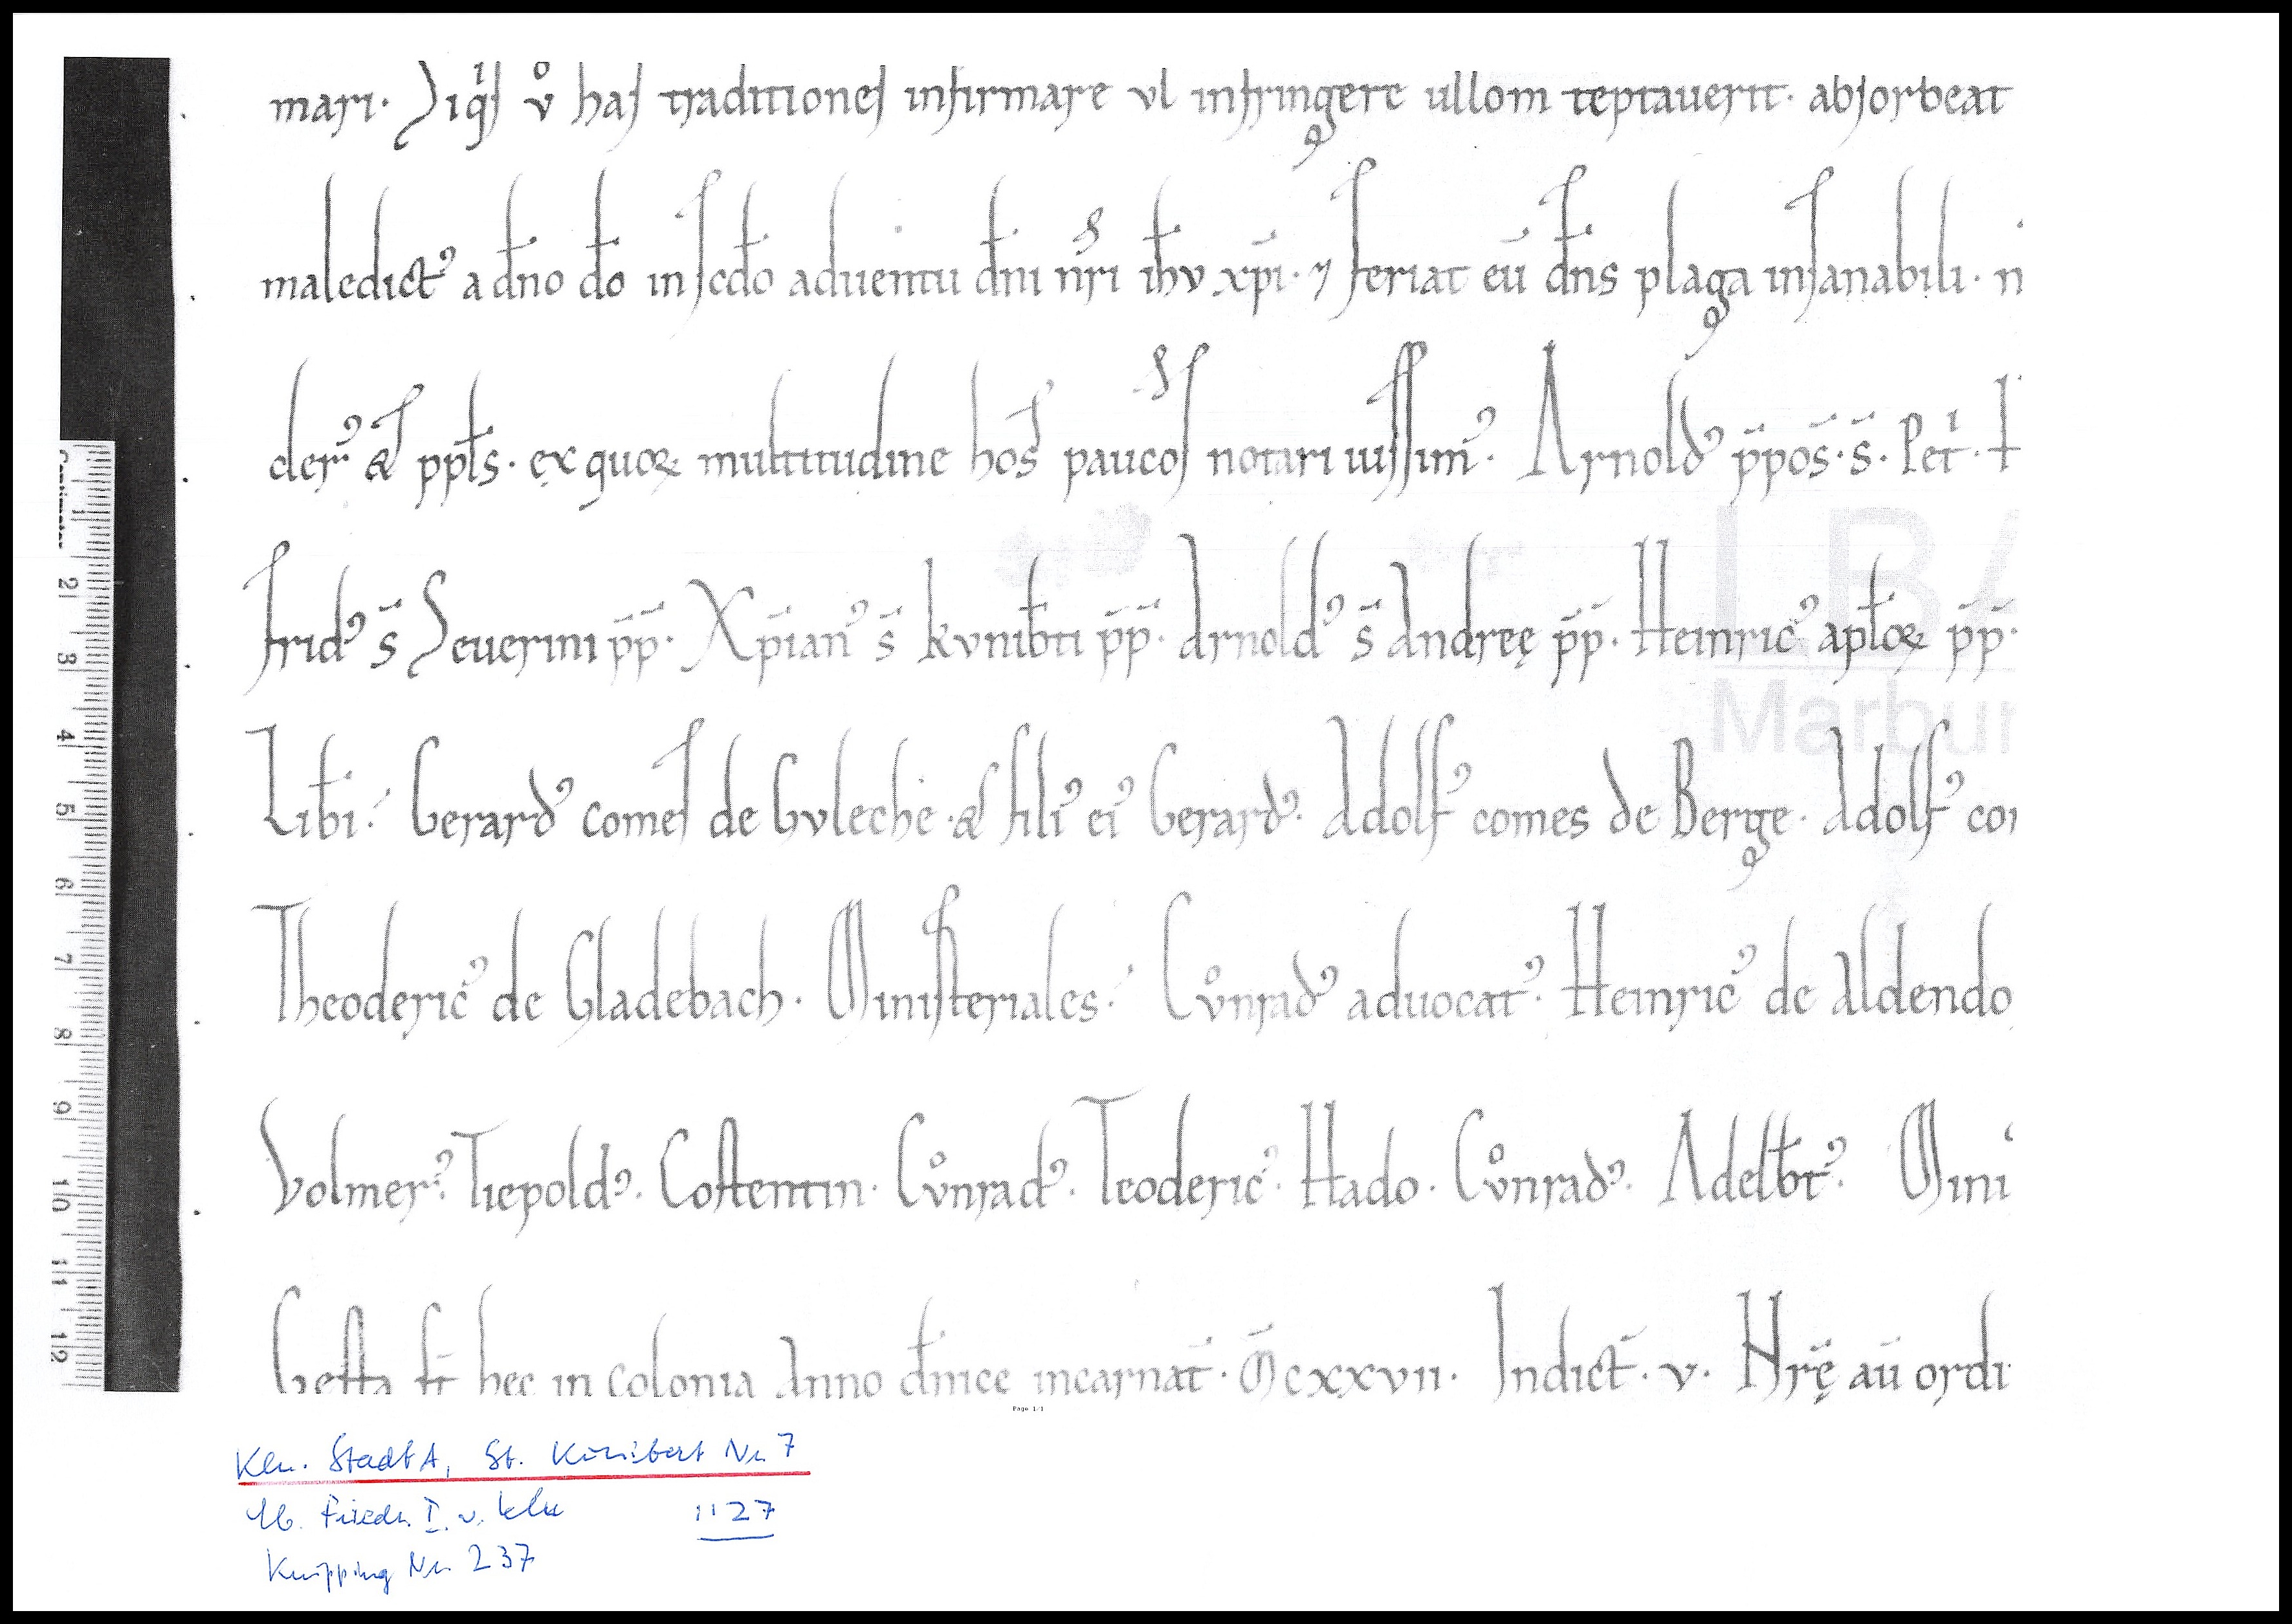 mari. Siqͥs v̊ has traditiones infirmare vl infringere ullom teptauerit. absorbeat
maledictꝰ a dn̄o dō in scd̄o aduentu dn̄i nr̄i ih̄v xp̄i. ⁊ feriat eū dn̄s plaga insanabili. n
derꝰ & ppl̄s. ęx quoꝝ multitudine hos̄ paucos notari iussimꝰ. Arnoldꝰ p̄pos̄. s̄. Pet͛. t
fridꝰ s̄ Seuerini p̄p̄. Xp̄ianꝰ s̄ kvnib̄ti p̄p̄. Arnoldꝰ s̄ Andreę p̄p̄. Heinricꝰ apl̄oꝝ p̄p̄.
Lib̄i. Gerardꝰ comes de Gvleche. & filiꝰ eiꝰ Gerardꝰ. Adolfꝰ comes de Berge. Adolfꝰ co
Theodericꝰ de Gladebach. Ministeriales. Cv̊nradꝰ aduocatꝰ. Heinricꝰ de Aldendo
Volmerꝰ. Tiepoldꝰ. Costentin. Cv̊nradꝰ. Teodericꝰ. Hado. Cv̊nradꝰ. Adelb̄tꝰ. Mini
Gesta st̄ hec in colonia Anno dn̄ice incarnat̄. M̄cxxvii. Indict̄. v. Hr̄ę aū ordi
Centimetres
2 3 4 5 6 7 8 9 10 11 12
LBA
Marbur
Page 1/1
Kln. StadtA, St. Kunibert Nr. 7
Eb. Friedr. I. v. Kln 1127
Knipping Nr. 237